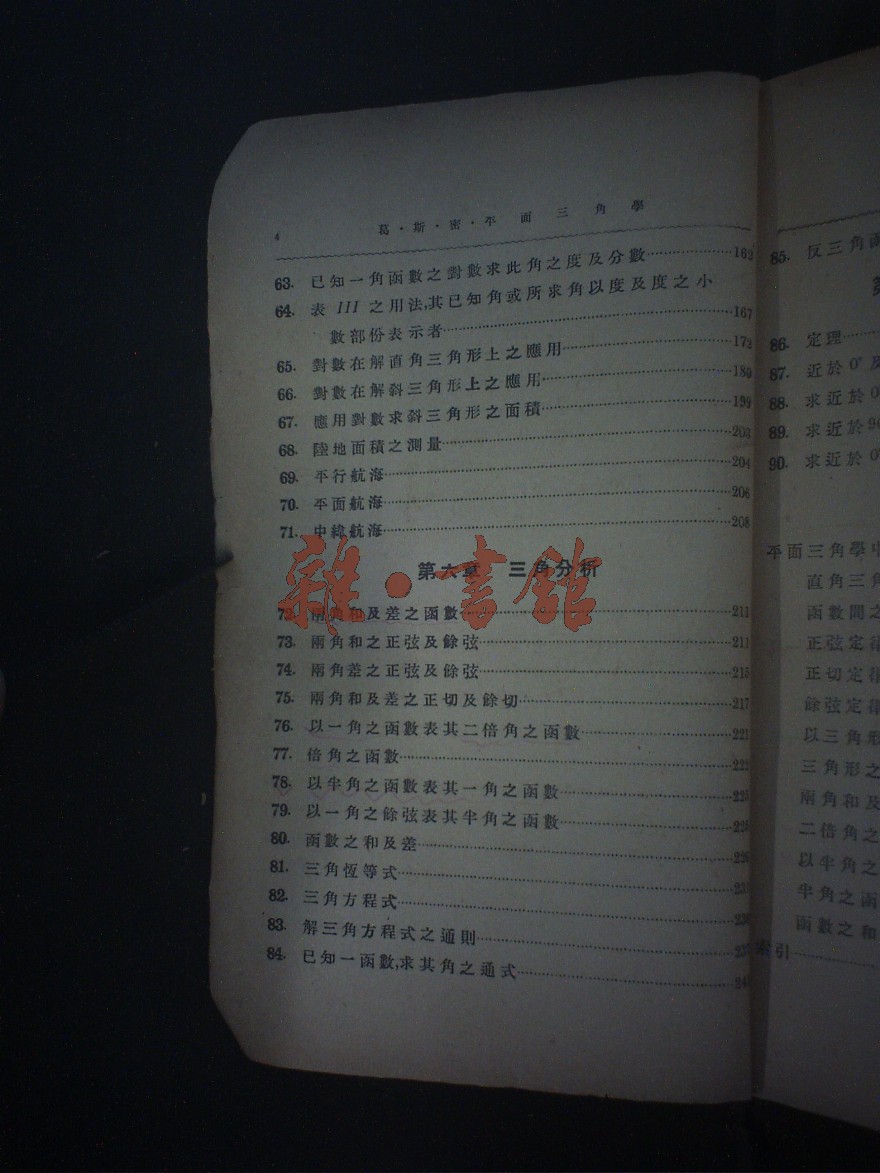 4 葛·斯·密·平面三角學
63. 已知一角函數之對數求此角之度及分數 162
64. 表 III 之用法,其已知角或所求角以度及度之小
數部份表示者 167
65. 對數在解直角三角形上之應用 172
66. 對數在解斜三角形上之應用 180
67. 應用對數求斜三角形之面積 199
68. 陸地面積之測量 203
69. 平行航海 204
70. 平面航海 206
71. 中緯航海 208
雜·書館
第六章 三角分析
72. 兩角和及差之函數 211
73. 兩角和之正弦及餘弦 211
74. 兩角差之正弦及餘弦 215
75. 兩角和及差之正切及餘切 217
76. 以一角之函數表其二倍角之函數 221
77. 倍角之函數 222
78. 以半角之函數表其一角之函數 225
79. 以一角之餘弦表其半角之函數 225
80. 函數之和及差
81. 三角恆等式
82. 三角方程式
83. 解三角方程式之通則
84. 已知一函數,求其角之通式
85. 反三角函
86. 定理
87. 近於0°及
88. 求近於0°
89. 求近於90
90. 求近於0°
平面三角學中
直角三角
函數間之
正弦定律
正切定律
餘弦定律
以三角形
三角形之
兩角和及
二倍角之
以半角之
半角之函
函數之和
索引